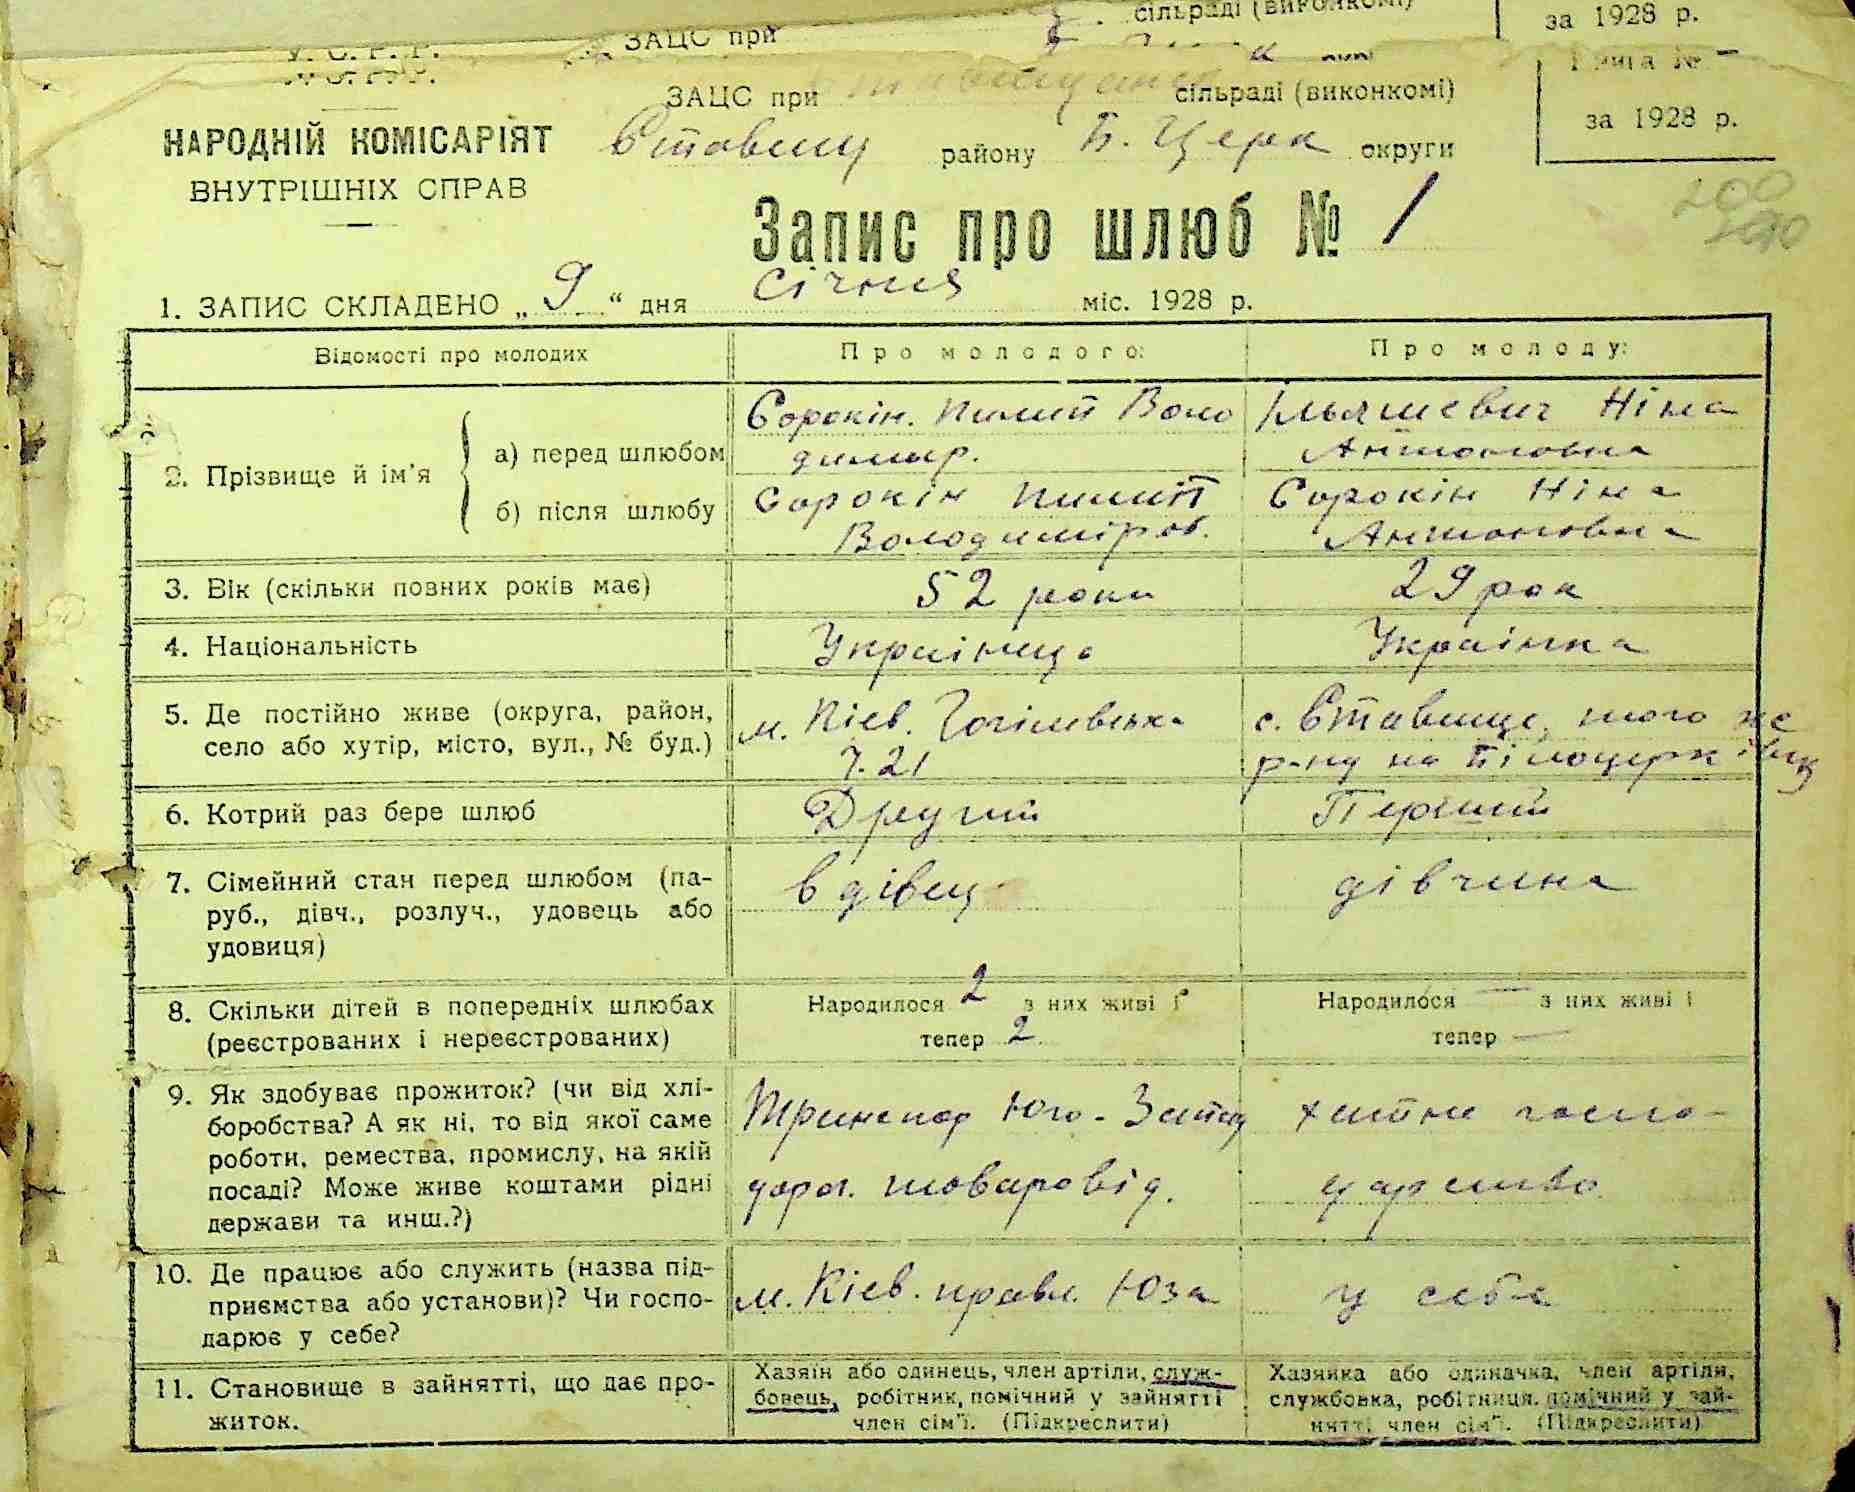 сільраді (виконкомі)
за 1928 р.
У. С. Р. Р.
ЗАЦС при
ЗАЦС при сільраді (виконкомі)
за 1928 р.
НАРОДНІЙ КОМІСАРІЯТ
ВНУТРІШНІХ СПРАВ
Ставищ району Б. Церк округи
Запис про шлюб № 1
200
1. ЗАПИС СКЛАДЕНО „ 9 “ дня січня міс. 1928 р.
Відомості про молодих
Про молодого:
Про молоду:
2. Прізвище й ім'я
а) перед шлюбом
Сорокін. Пилип Воло
димир.
Ніна
Антоновна
б) після шлюбу
Сорокін Пилип
Володиміров.
Сорокін Ніна
Антоновна
3. Вік (скільки повних років має)
52 роки
29 рок
4. Національність
Українець
Українка
5. Де постійно живе (округа, район,
село або хутір, місто, вул., № буд.)
м. Кіев. Гогілевська
ч. 21
с. Ставище, того же
р-ну на Білоцерківщ
6. Котрий раз бере шлюб
Другий
Перший
7. Сімейний стан перед шлюбом (па-
руб., дівч., розлуч., удовець або
удовиця)
вдівец
дівчина
8. Скільки дітей в попередніх шлюбах
(реєстрованих і нереєстрованих)
Народилося 2 з них живі і
тепер 2
Народилося — з них живі і
тепер —
9. Як здобуває прожиток? (чи від хлі-
боробства? А як ні, то від якої саме
роботи, ремества, промислу, на якій
посаді? Може живе коштами рідні
держави та инш.?)
Транспор Юго-Запад
дорог. товаровід.
хатне госпо-
дарство
10. Де працює або служить (назва під-
приємства або установи)? Чи госпо-
дарює у себе?
м. Кіев. правл. Юза
у себе
11. Становище в зайнятті, що дає про-
житок.
Хазяїн або одинець, член артіли, служ-
бовець, робітник, помічний у зайнятті
член сім'ї. (Підкреслити)
Хазяйка або одиначка, член артіли,
службовка, робітниця, помічний у зай-
нятті член сім'ї. (Підкреслити)